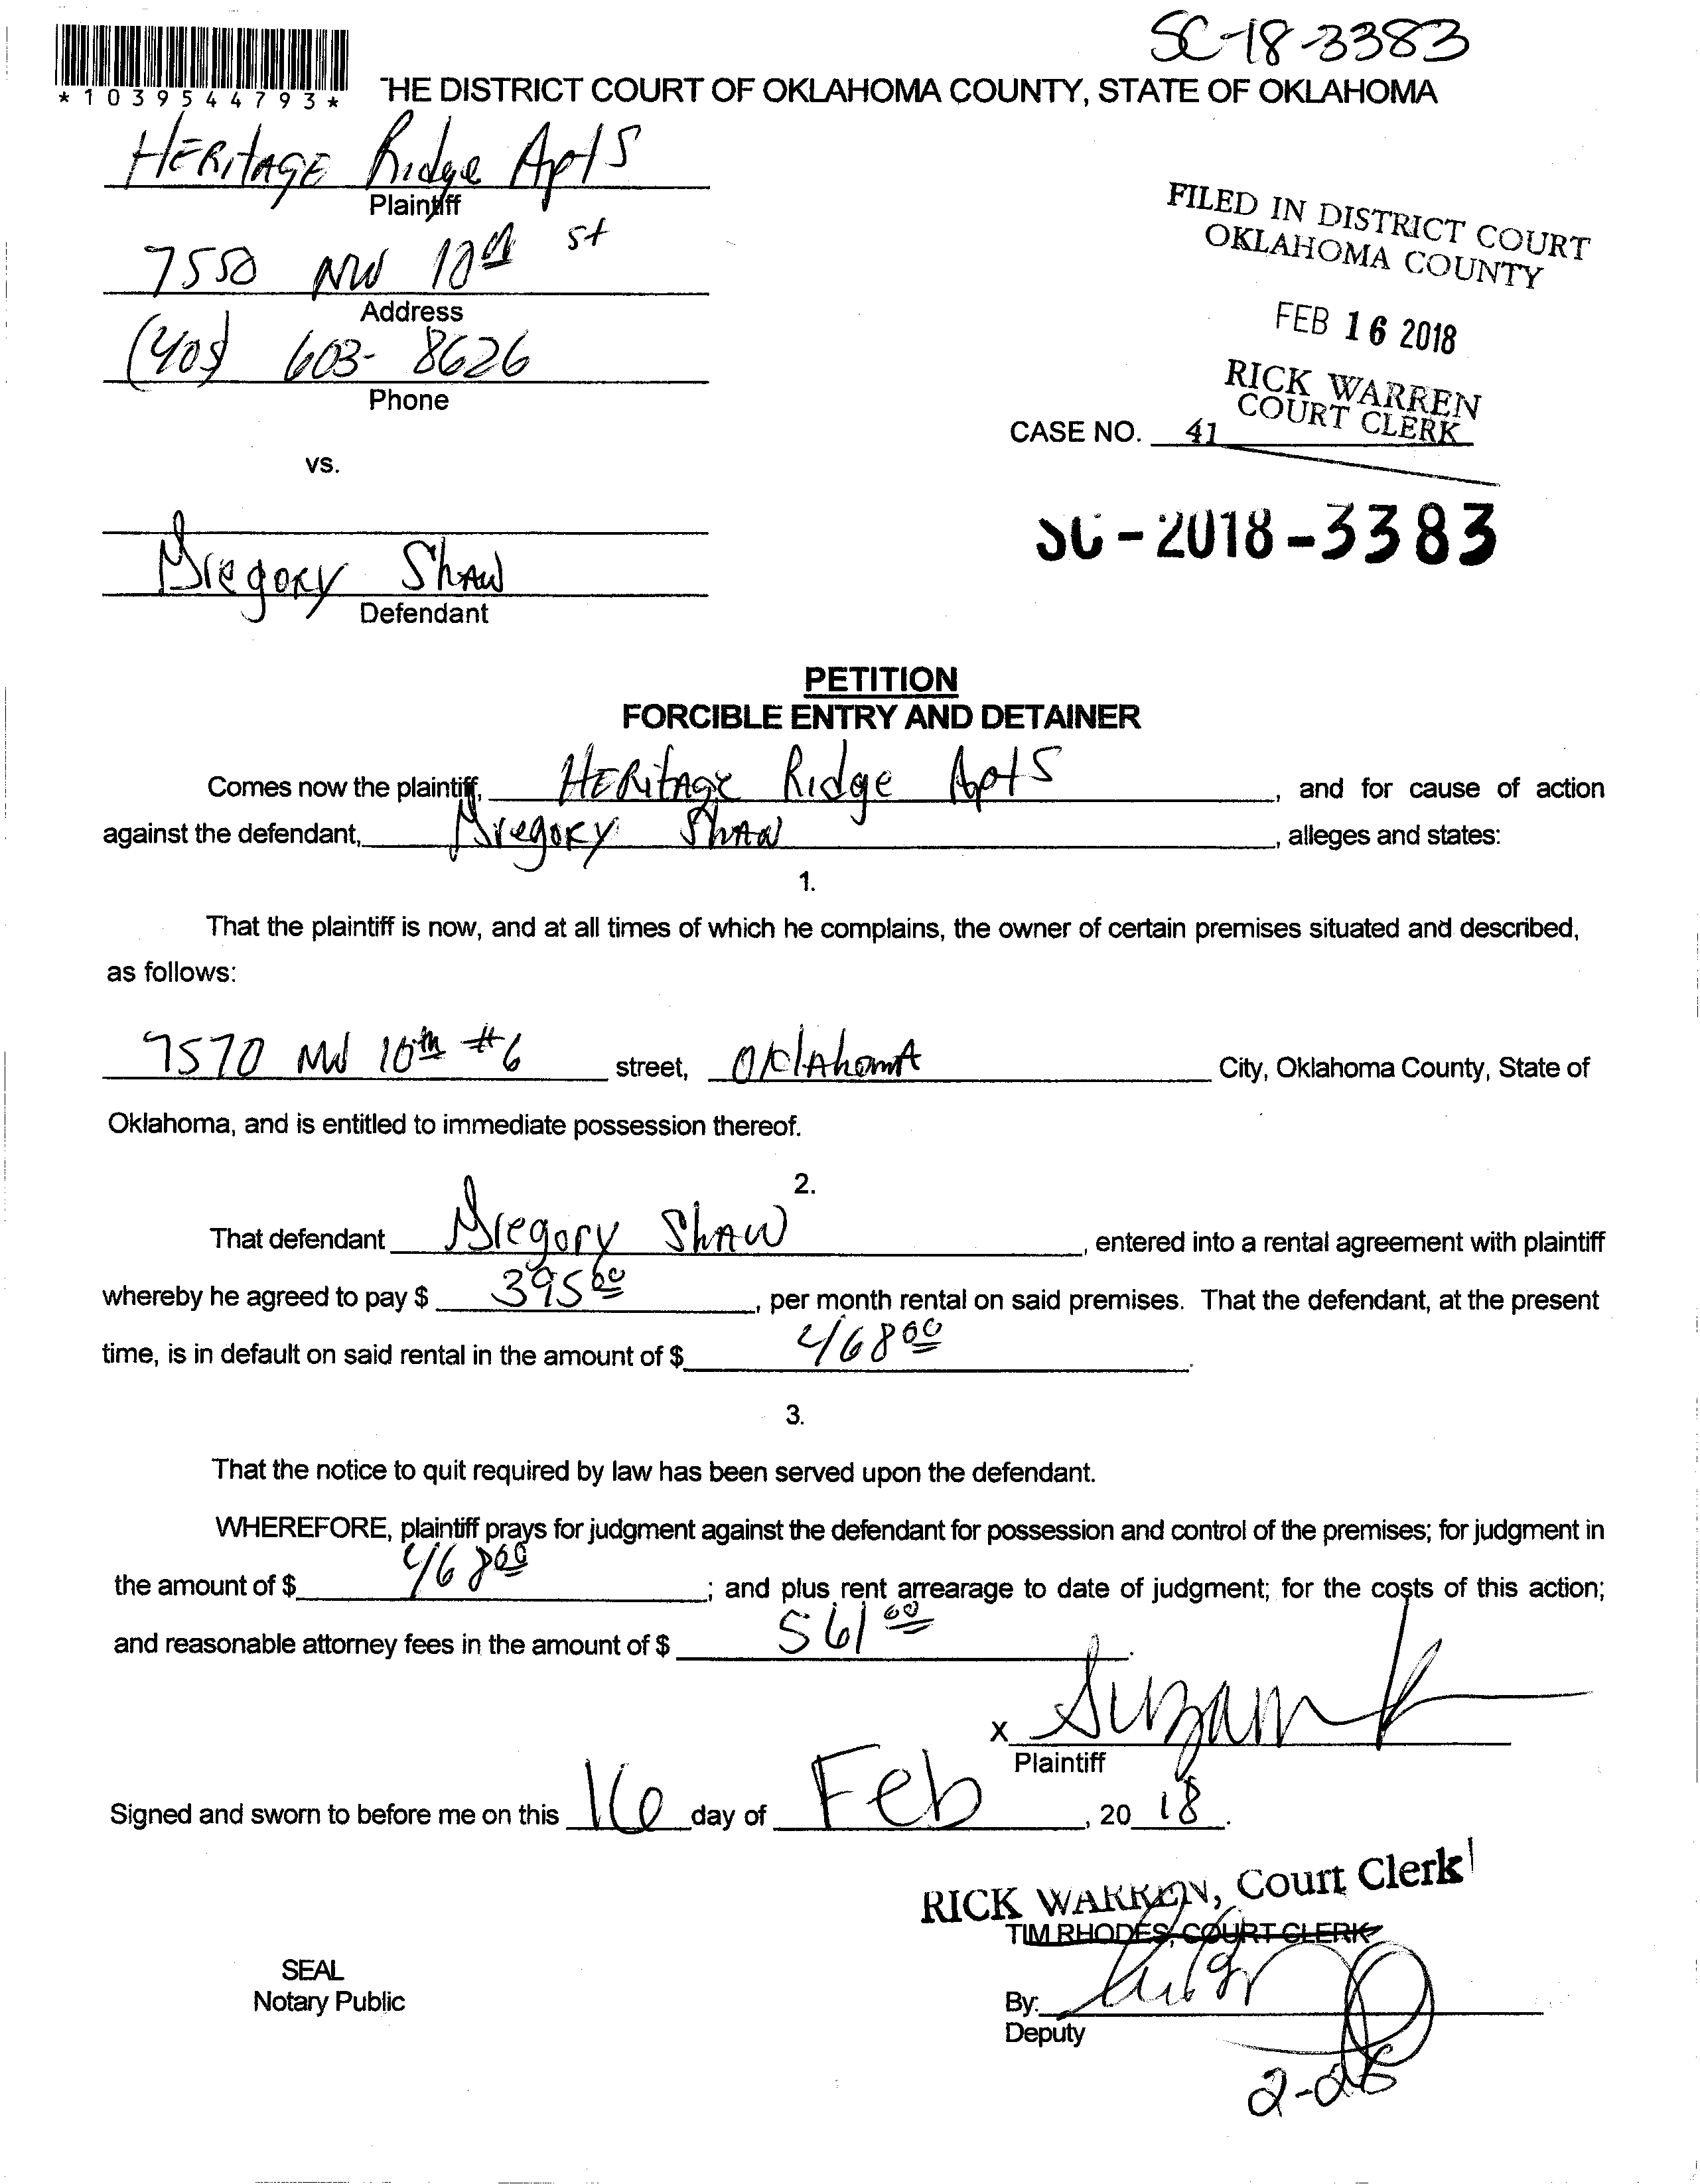 SC-18-3383
*1039544793*
THE DISTRICT COURT OF OKLAHOMA COUNTY, STATE OF OKLAHOMA
HERitAGE Ridge Apts
Plaintiff
7550 NW 10th st
Address
(405) 603-8626
Phone
FILED IN DISTRICT COURT
OKLAHOMA COUNTY
FEB 16 2018
RICK WARREN
COURT CLERK
CASE NO. 41
vs.
SC-2018-3383
Gregory Shaw
Defendant
PETITION
FORCIBLE ENTRY AND DETAINER
Comes now the plaintiff, HERitAGE Ridge Apts, and for cause of action
against the defendant, Gregory Shaw, alleges and states:
1.
That the plaintiff is now, and at all times of which he complains, the owner of certain premises situated and described,
as follows:
7570 NW 10th #6 street, OklAhomA City, Oklahoma County, State of
Oklahoma, and is entitled to immediate possession thereof.
2.
That defendant Gregory Shaw, entered into a rental agreement with plaintiff
whereby he agreed to pay $ 395 00, per month rental on said premises. That the defendant, at the present
time, is in default on said rental in the amount of $ 468 00.
3.
That the notice to quit required by law has been served upon the defendant.
WHEREFORE, plaintiff prays for judgment against the defendant for possession and control of the premises; for judgment in
the amount of $ 468 00; and plus rent arrearage to date of judgment; for the costs of this action;
and reasonable attorney fees in the amount of $ 561 00.
X
Plaintiff
Signed and sworn to before me on this 16 day of Feb, 20 18.
RICK WARREN, Court Clerk
TIM RHODES, COURT CLERK
SEAL
Notary Public
By:
Deputy